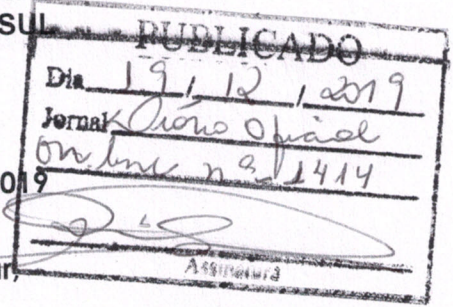 SUL
PUBLICADO
Dia 19 / 12 / 2019
Jornal Diário Oficial
On line nº 1414
019
Assinatura
ar,